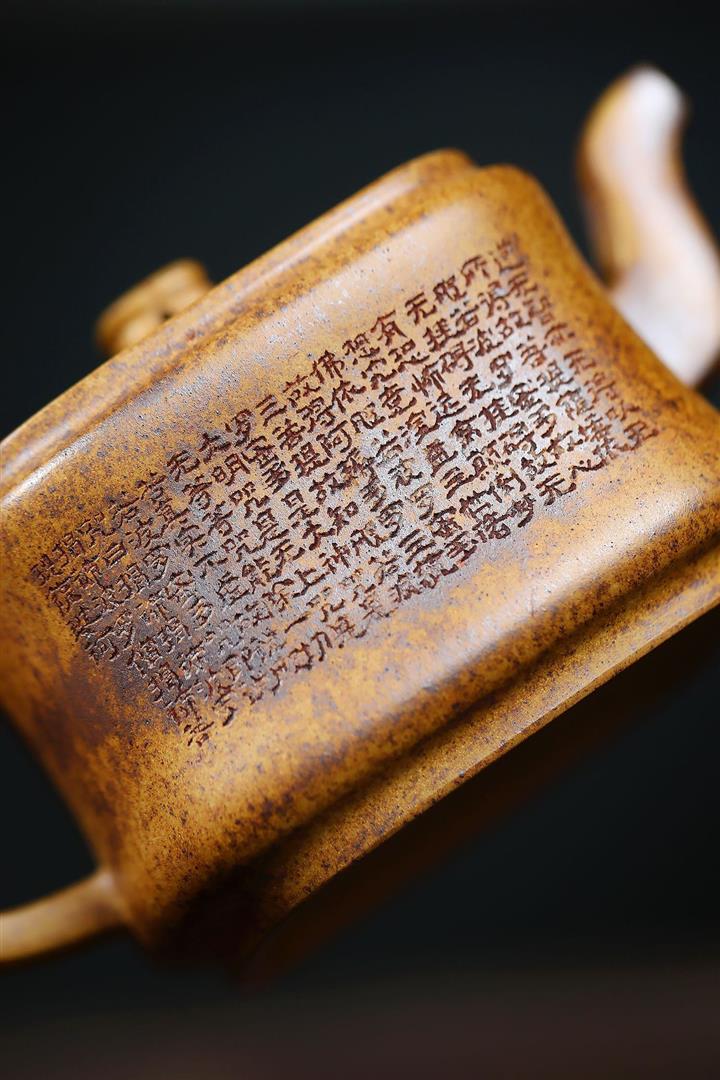 道无智亦无得以无
所得故菩提萨埵依
般若波罗蜜多故心
无挂碍无挂碍故无
有恐怖远离颠倒梦
想究竟涅槃三世诸
佛依般若波罗蜜多
故得阿耨多罗三藐
三菩提故知般若波
罗蜜多是大神咒是
大明咒是无上咒是
无等等咒能除一切
苦真实不虚故
若波罗蜜多
咒曰揭谛
揭谛